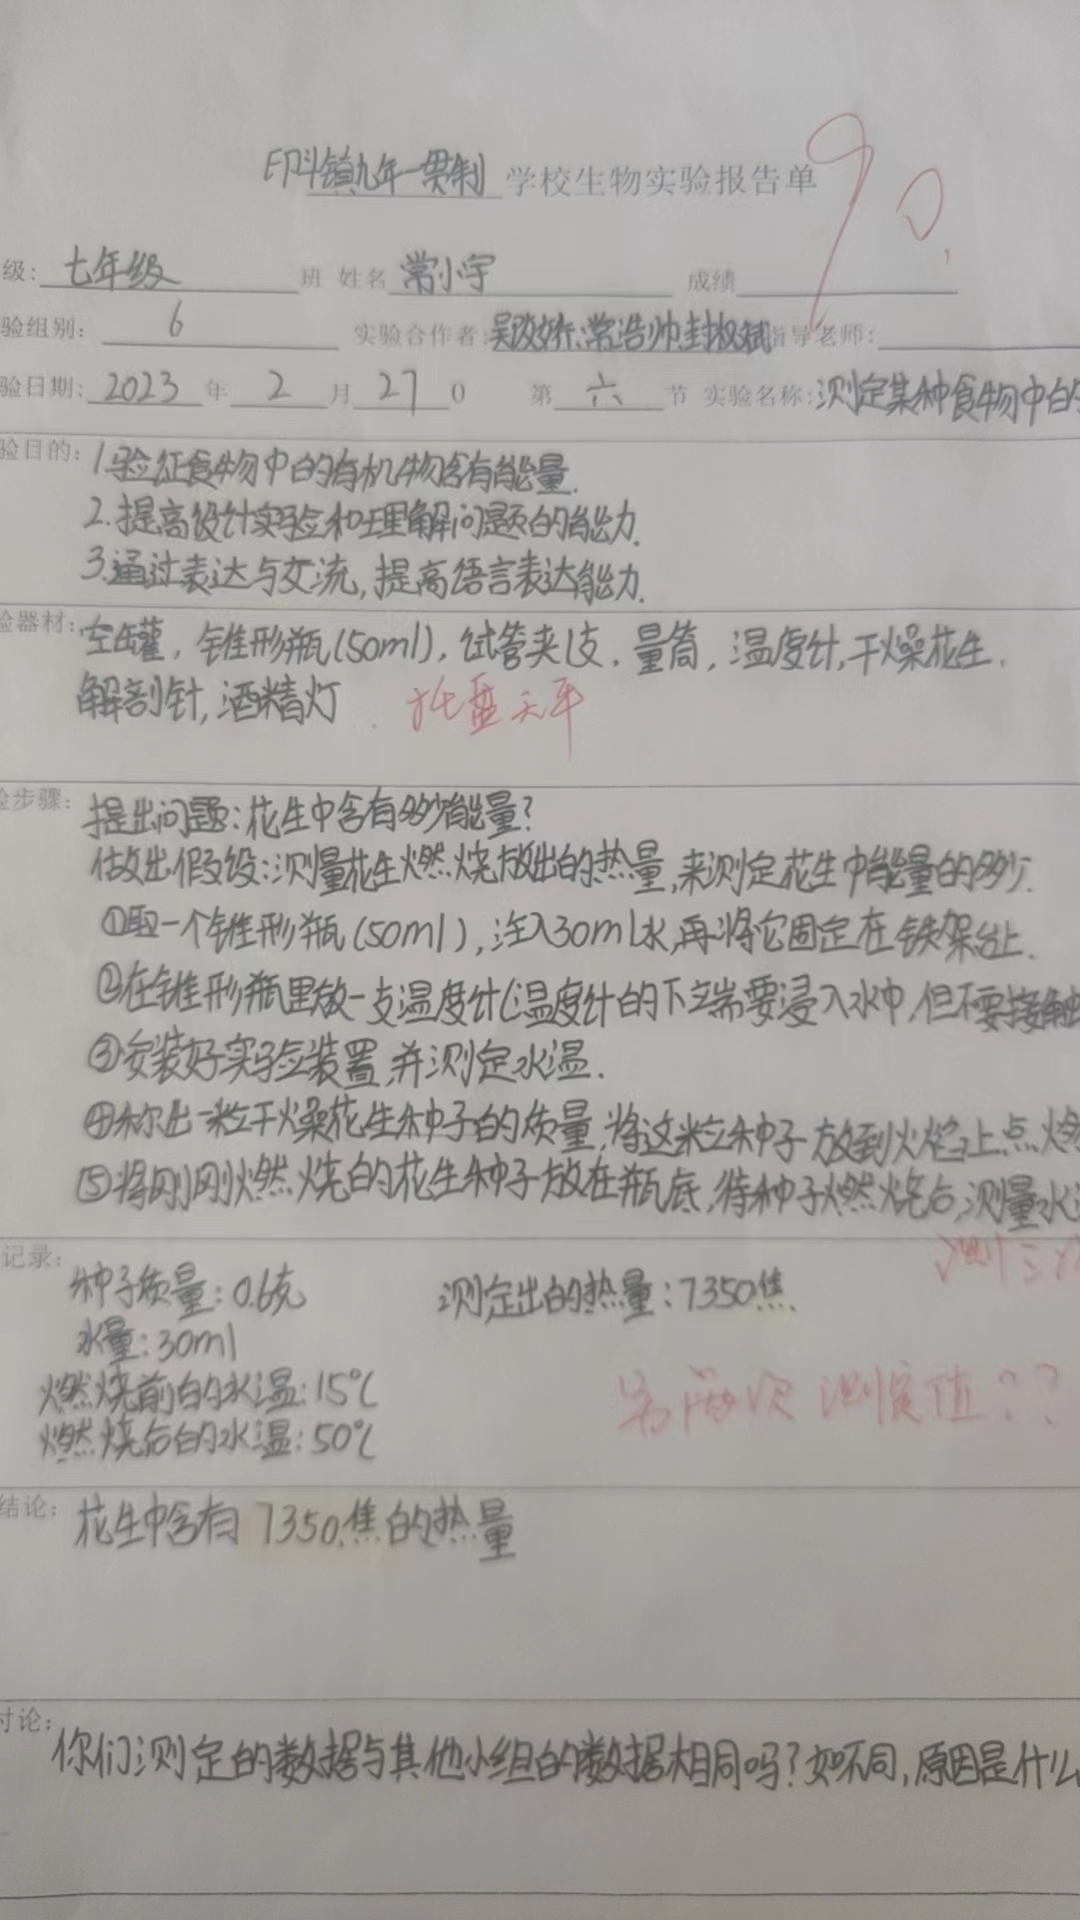 印斗镇九年一贯制 学校生物实验报告单
90
级: 七年级 班 姓名 常小宇 成绩
验组别: 6 实验合作者: 吴改娇 常浩帅 封权斌 指导老师:
验日期: 2023 年 2 月 27 日 第 六 节 实验名称: 测定某种食物中的
验目的: 1.验征食物中的有机物含有能量.
2.提高设计实验和理解问题的能力.
3.通过表达与交流,提高语言表达能力.
验器材: 空罐,锥形瓶(50ml),试管夹1支.量筒,温度计,干燥花生.
解剖针,酒精灯. 托盘天平
验步骤: 提出问题:花生中含有多少能量?
做出假设:测量花生燃烧放出的热量,来测定花生中能量的多少.
①取一个锥形瓶(50ml),注入30ml水,再将它固定在铁架台上.
②在锥形瓶里放一支温度计(温度计的下端需要浸入水中,但不要接触
③安装好实验装置,并测定水温.
④称出一粒干燥花生种子的质量,将这粒种子放到火焰上点燃
⑤将刚刚燃烧的花生种子放在瓶底,待种子燃烧后,测量水
测三次
记录:
种子质量:0.6克 测定出的热量:7350焦
水量:30ml
燃烧前的水温:15℃
另两次测定值??
燃烧后的水温:50℃
结论: 花生中含有7350焦的热量
讨论:
你们测定的数据与其他小组的数据相同吗?如不同,原因是什么